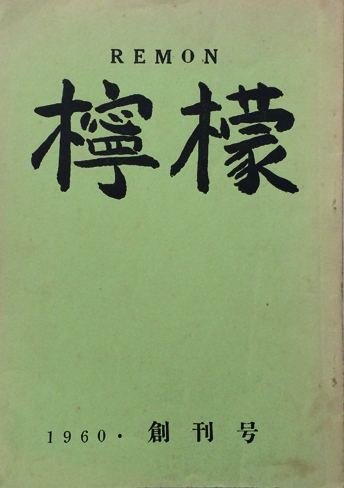 REMON
檸檬
1960・創刊号